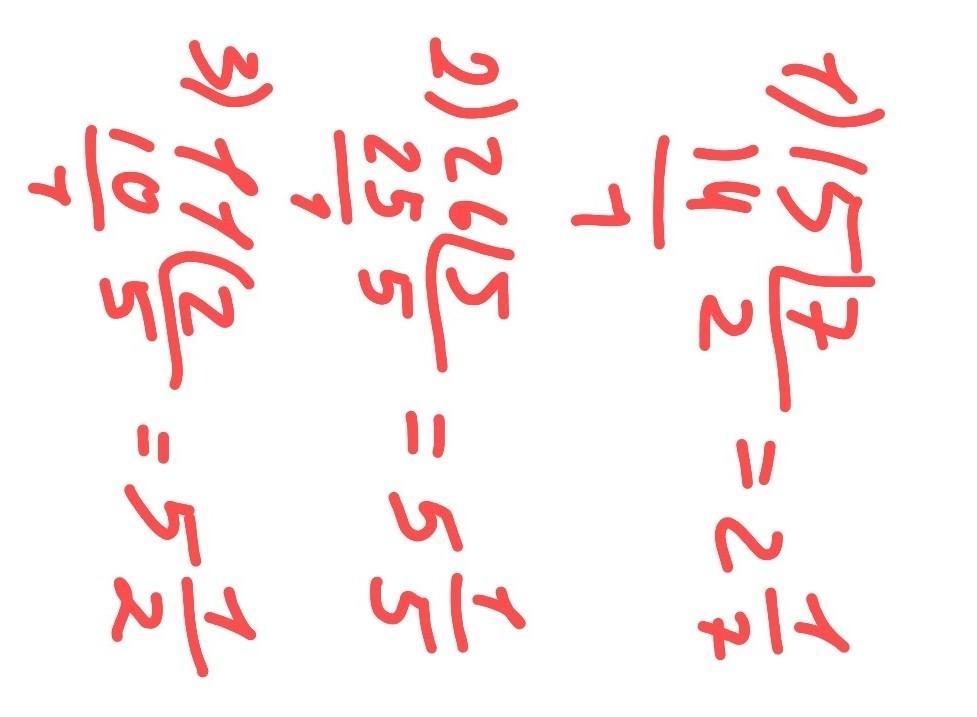 1) 15 7 = 2 1/7
14 2
1
2) 26 5 = 5 1/5
25 5
1
3) 11 2 = 5 1/2
10 5
1